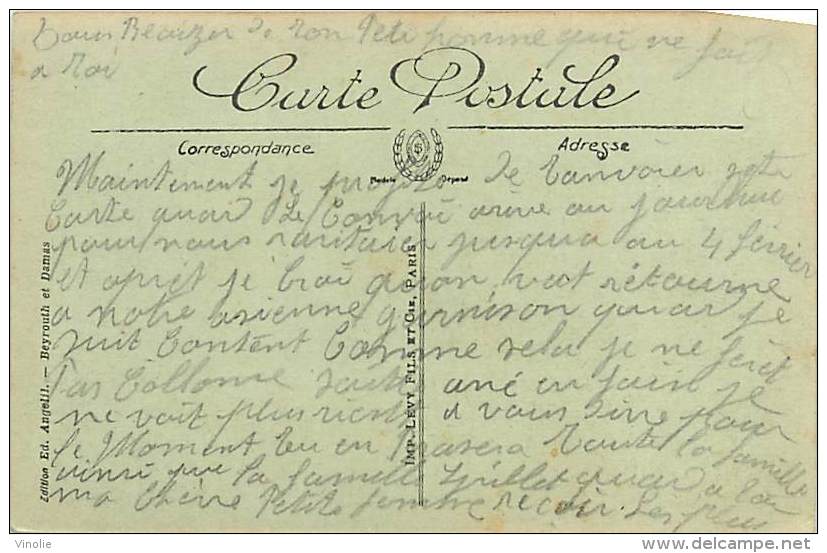 Tous Beaizer de ton Peti homme qui ne fait
a toi
Carte Postale
Correspondance
Adresse
Modèle Déposé
Maintement je profite de tanvoier sete
Carte quar Le Convoi arive au journue
pour nous jusqua au 4 février
et apret je croi quon vat rétourne
a notre asienne garnison quar je
suit Content Comme sela je ne ferêt
Pas Collone ané en fain je
ne voit plus rient a vous dire pour
le Moment tu en Brasera toute la famille
ainsi que la famille quar a toi
ma chère Petite femme recoir Les plus
Edition Ed. Angelil. — Beyrouth et Damas
IMP. LÉVY FILS ET CIE, PARIS
Delcampe.net
v-vinolie